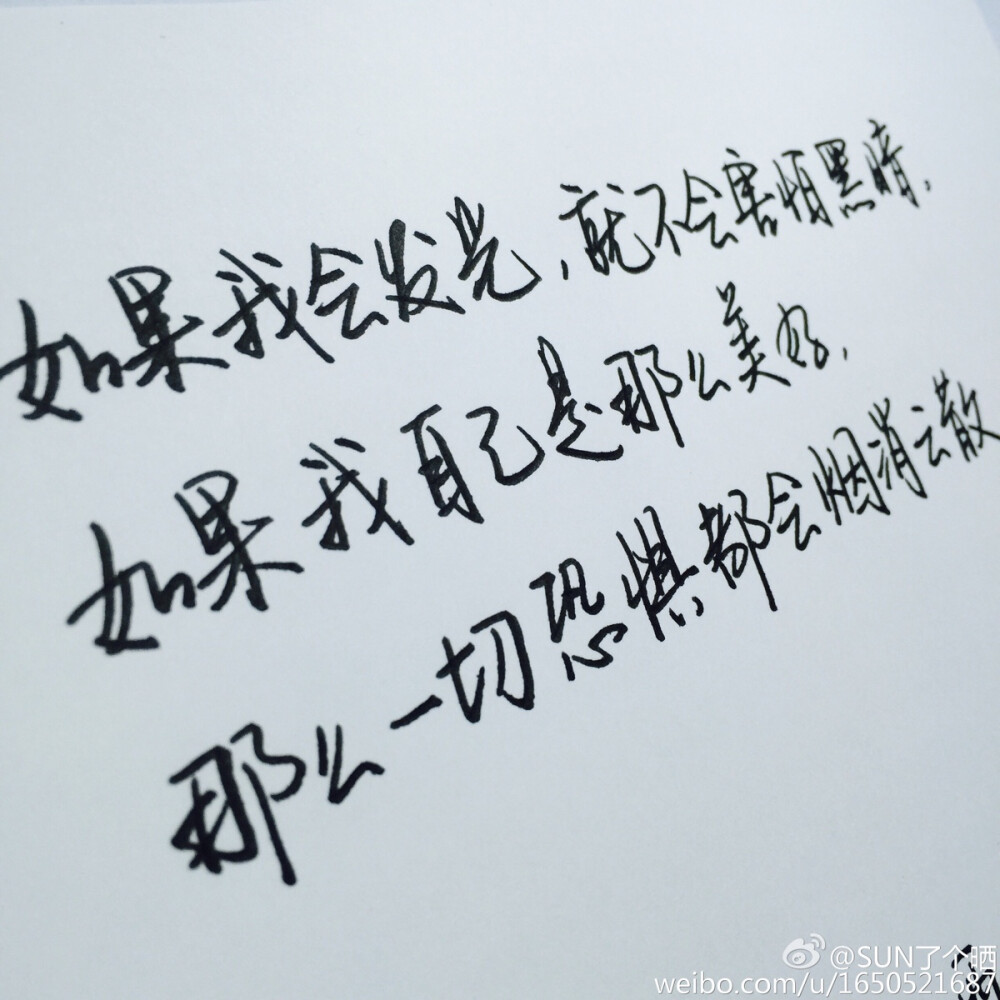 如果我会发光,就不会害怕黑暗.
如果我自己是那么美好.
那么一切恐惧都会烟消云散
@SUN了个晒
weibo.com/u/1650521687